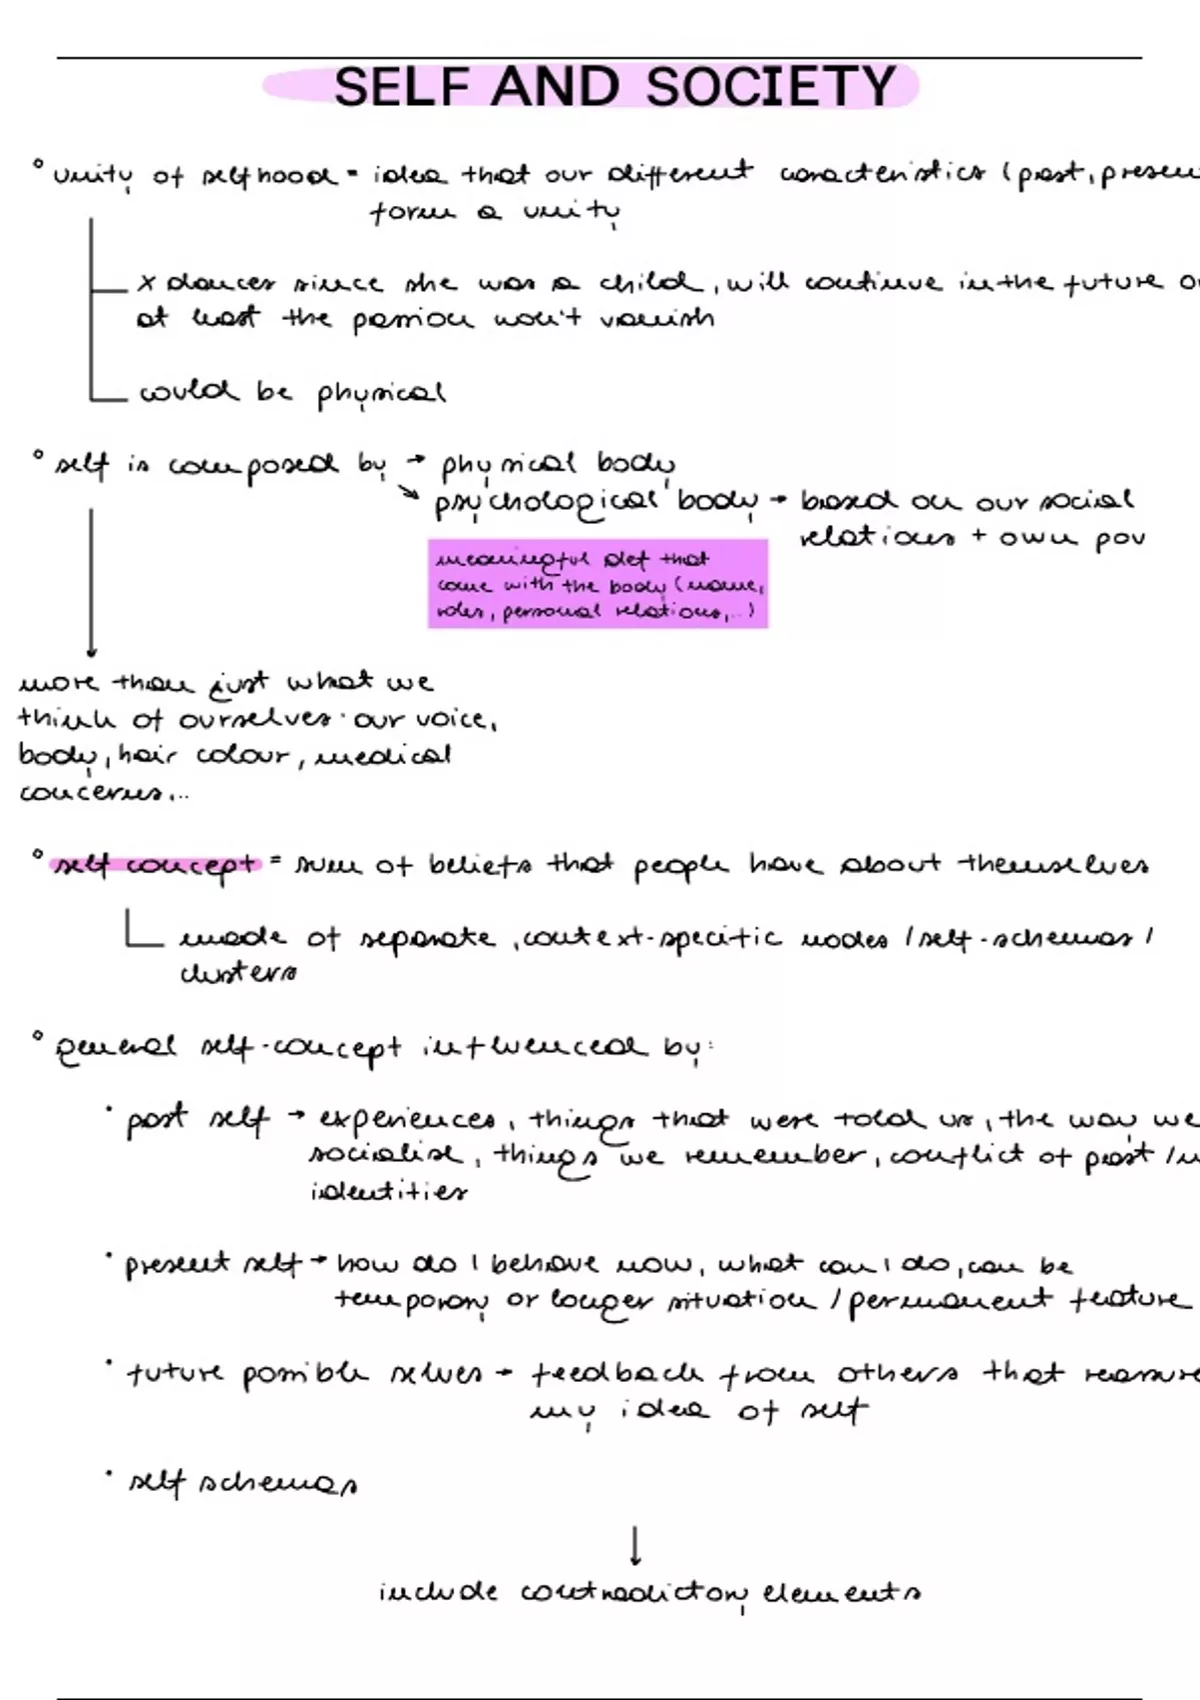 SELF AND SOCIETY
° unity of selfhood = idea that our different caracteristics (past, presen
form a unity
x dances since she was a child, will continue in the future or
at least the passion won't vanish
could be physical
° self is composed by → physical body
psychological body → based on our social
relations + own pov
meaningful def that
come with the body (name,
roles, personal relations,..)
more than just what we
think of ourselves: our voice,
body, hair colour, medical
concerns...
° self concept = sum of beliefs that people have about themselves
made of separate, context-specific nodes / self-schemas /
clusters
° general self-concept influenced by:
· past self → experiences, things that were told us, the way we
socialise, things we remember, conflict of past /
identities
· present self → how do I behave now, what can I do, can be
temporary or longer situation / permanent feature
· future possible selves → feedback from others that reassure
my idea of self
· self schemas
↓
include contradictory elements